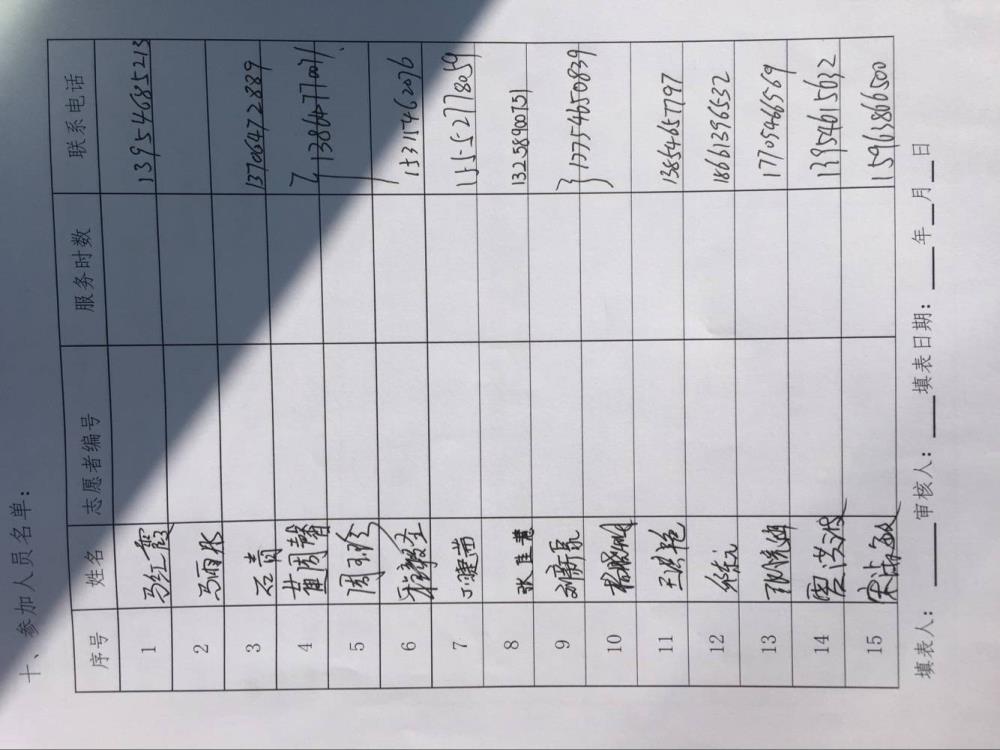 十、参加人员名单:
序号 姓名 志愿者编号 服务时数 联系电话
1 马红霞 13954685213
2 马丽水
3 石青 13706472889
4 黄周馨 13864677007
5 周玉珍
6 15317462076
7 丁建尚 15552778059
8 张佳慧 13258900751
9 刘新泉 17754650839
10 杨鹏飞
11 王艳艳 13854657797
12 任志 18661396532
13 17705466569
14 贾洪波 13954615632
15 宋海敏 15963866500
填表人: 审核人: 填表日期: 年 月 日